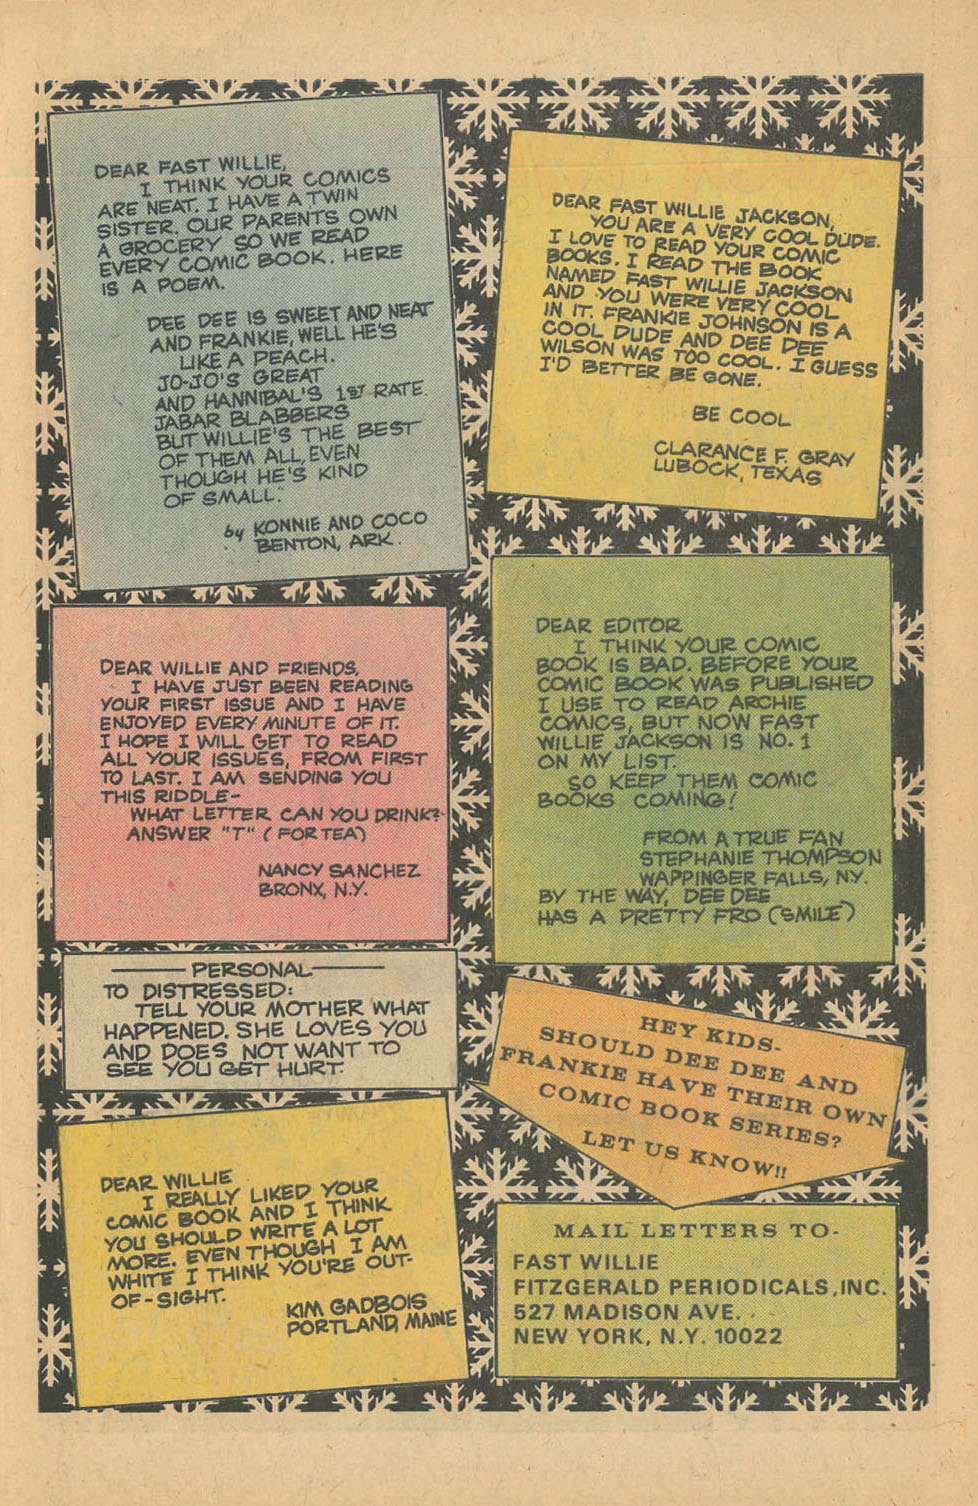 DEAR FAST WILLIE,
I THINK YOUR COMICS
ARE NEAT. I HAVE A TWIN
SISTER. OUR PARENTS OWN
A GROCERY SO WE READ
EVERY COMIC BOOK. HERE
IS A POEM.
DEE DEE IS SWEET AND NEAT
AND FRANKIE, WELL HE'S
LIKE A PEACH.
JO-JO'S GREAT
AND HANNIBAL'S 1ST RATE.
JABAR BLABBERS
BUT WILLIE'S THE BEST
OF THEM ALL, EVEN
THOUGH HE'S KIND
OF SMALL.
by KONNIE AND COCO
BENTON, ARK.
DEAR FAST WILLIE JACKSON,
YOU ARE A VERY COOL DUDE.
I LOVE TO READ YOUR COMIC
BOOKS. I READ THE BOOK
NAMED FAST WILLIE JACKSON
AND YOU WERE VERY COOL
IN IT. FRANKIE JOHNSON IS A
COOL DUDE AND DEE DEE
WILSON WAS TOO COOL. I GUESS
I'D BETTER BE GONE.
BE COOL
CLARANCE F. GRAY
LUBOCK, TEXAS
DEAR WILLIE AND FRIENDS,
I HAVE JUST BEEN READING
YOUR FIRST ISSUE AND I HAVE
ENJOYED EVERY MINUTE OF IT.
I HOPE I WILL GET TO READ
ALL YOUR ISSUES, FROM FIRST
TO LAST. I AM SENDING YOU
THIS RIDDLE-
WHAT LETTER CAN YOU DRINK?
ANSWER "T" (FOR TEA)
NANCY SANCHEZ
BRONX, N.Y.
DEAR EDITOR
I THINK YOUR COMIC
BOOK IS BAD. BEFORE YOUR
COMIC BOOK WAS PUBLISHED
I USE TO READ ARCHIE
COMICS, BUT NOW FAST
WILLIE JACKSON IS NO. 1
ON MY LIST.
SO KEEP THEM COMIC
BOOKS COMING!
FROM A TRUE FAN
STEPHANIE THOMPSON
WAPPINGER FALLS, N.Y.
BY THE WAY, DEE DEE
HAS A PRETTY FRO (SMILE)
PERSONAL
TO DISTRESSED:
TELL YOUR MOTHER WHAT
HAPPENED. SHE LOVES YOU
AND DOES NOT WANT TO
SEE YOU GET HURT.
HEY KIDS-
SHOULD DEE DEE AND
FRANKIE HAVE THEIR OWN
COMIC BOOK SERIES?
LET US KNOW!!
DEAR WILLIE
I REALLY LIKED YOUR
COMIC BOOK AND I THINK
YOU SHOULD WRITE A LOT
MORE. EVEN THOUGH I AM
WHITE I THINK YOU'RE OUT-
OF-SIGHT.
KIM GADBOIS
PORTLAND, MAINE
MAIL LETTERS TO-
FAST WILLIE
FITZGERALD PERIODICALS, INC.
527 MADISON AVE.
NEW YORK, N.Y. 10022